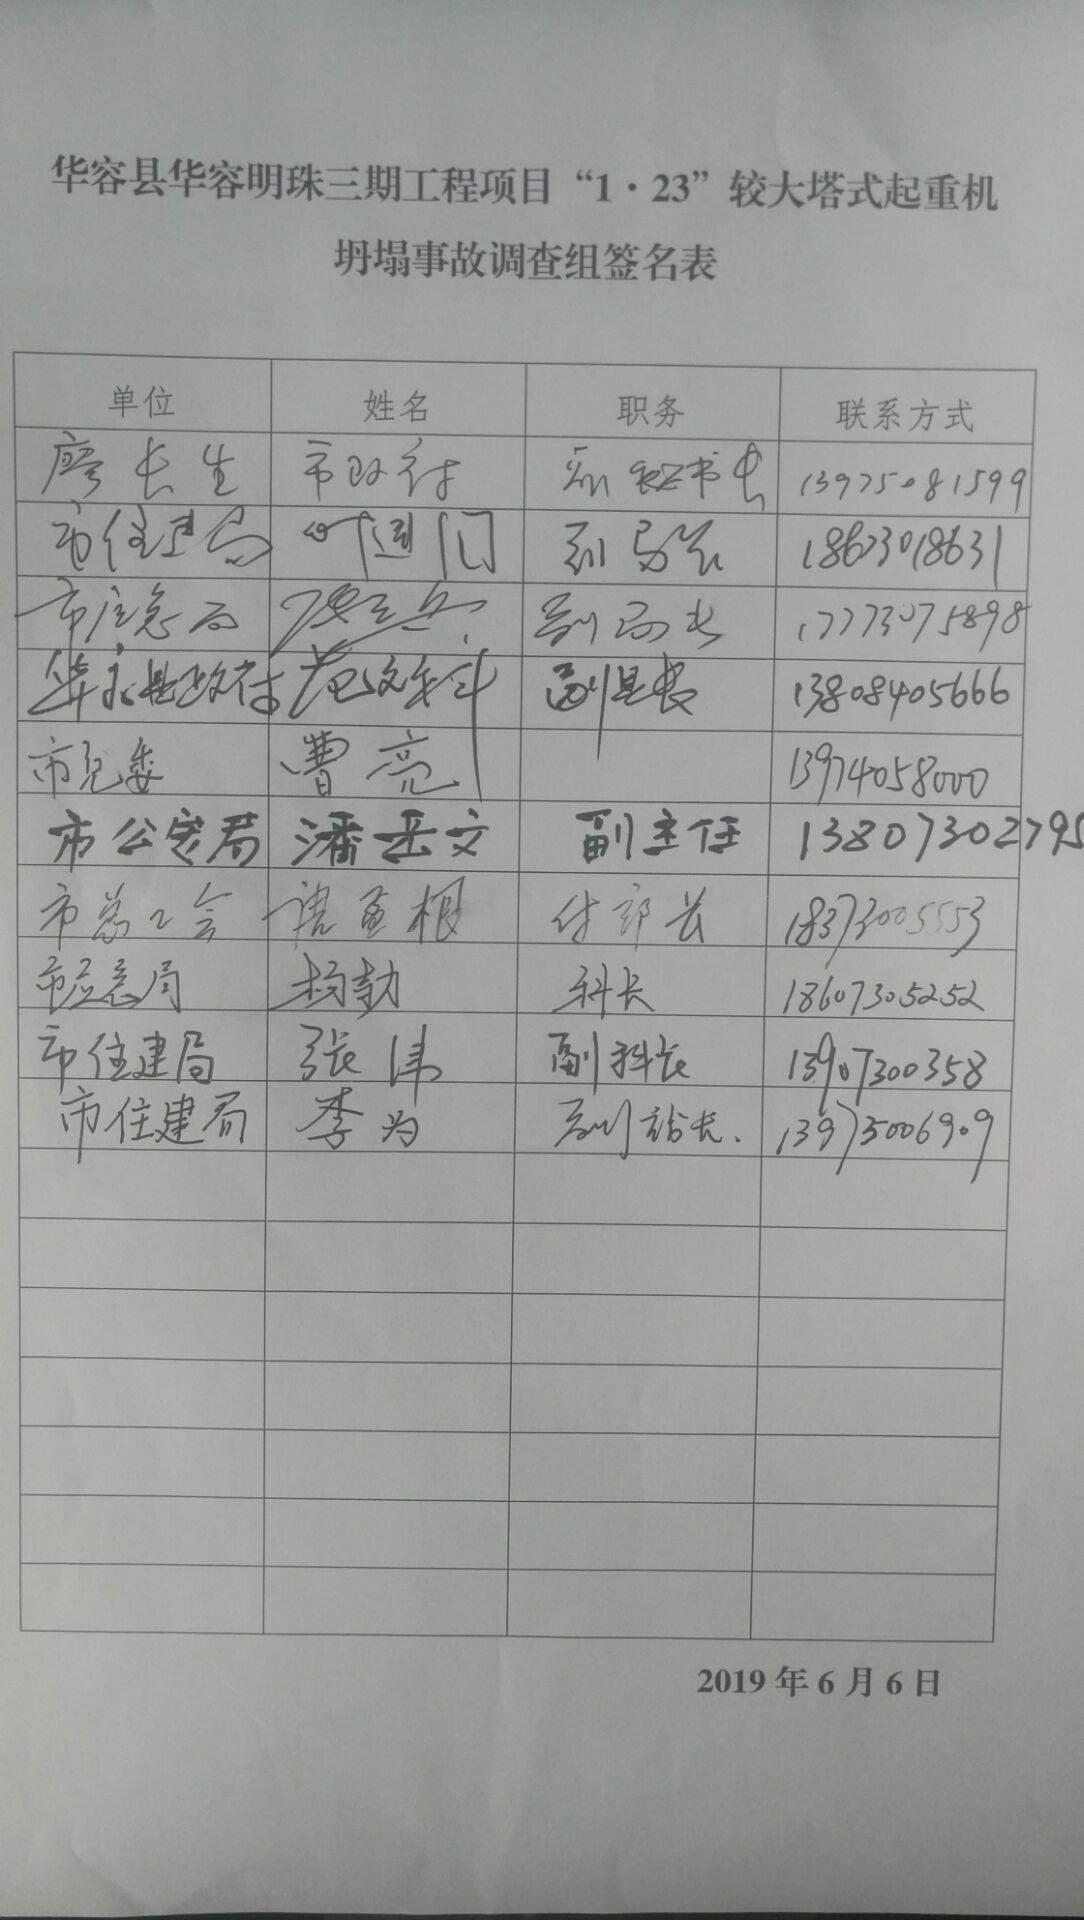 华容县华容明珠三期工程项目“1·23”较大塔式起重机
坍塌事故调查组签名表
单位 姓名 职务 联系方式
廖长生 市政府 副秘书长 13975081599
市住建局 副局长 18673018631
市应急局 副局长 17773075898
华容县政府 范文科 副县长 13808405666
市纪委 曹亮 13974058000
市公安局 潘岳文 副主任 13807302795
市总工会 付部长 18373005553
市应急局 杨勃 科长 18607305252
市住建局 张伟 副科长 13907300358
市住建局 李为 副站长. 13973006909
2019年6月6日